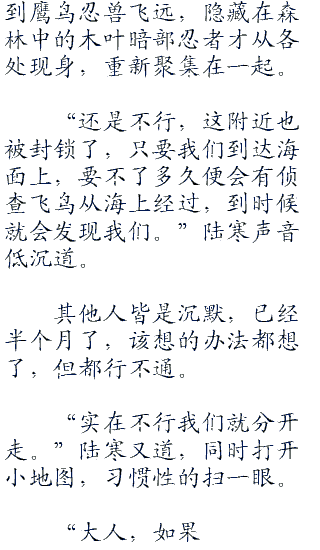 到鹰鸟忍兽飞远，隐藏在森
林中的木叶暗部忍者才从各
处现身，重新聚集在一起。
“还是不行，这附近也
被封锁了，只要我们到达海
面上，要不了多久便会有侦
查飞鸟从海上经过，到时候
就会发现我们。”陆寒声音
低沉道。
其他人皆是沉默，已经
半个月了，该想的办法都想
了，但都行不通。
“实在不行我们就分开
走。”陆寒又道，同时打开
小地图，习惯性的扫一眼。
“大人，如果